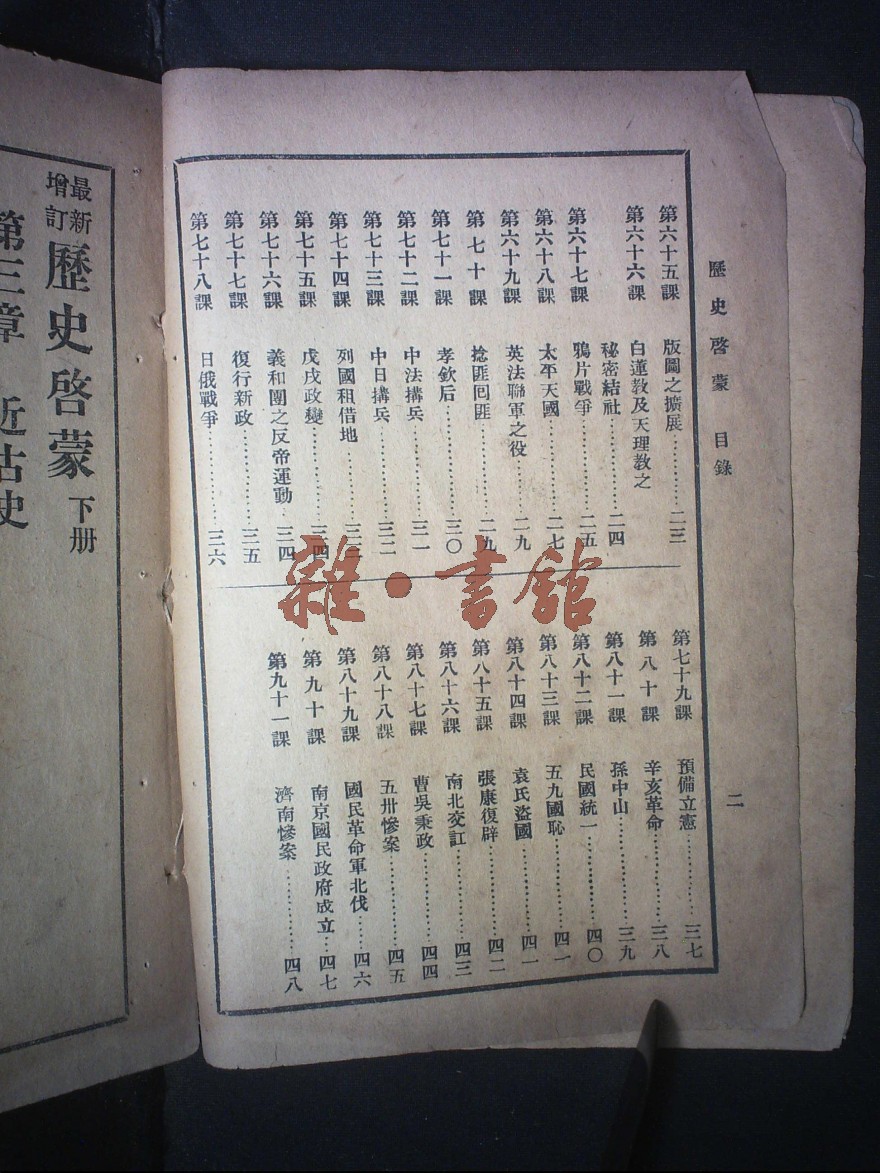 歷史啓蒙 目錄
二
第六十五課 版圖之擴展………二三
第六十六課 白蓮教及天理教之
秘密結社………二四
第六十七課 鴉片戰爭………二五
第六十八課 太平天國………二七
第六十九課 英法聯軍之役………二九
第七十課 捻匪回匪………二九
第七十一課 孝欽后………三〇
第七十二課 中法搆兵………三一
第七十三課 中日搆兵………三二
第七十四課 列國租借地………三三
第七十五課 戊戌政變………三四
第七十六課 義和團之反帝運動…三四
第七十七課 復行新政………三五
第七十八課 日俄戰爭………三六
第七十九課 預備立憲………三七
第八十課 辛亥革命………三八
第八十一課 孫中山………三九
第八十二課 民國統一………四〇
第八十三課 五九國恥………四一
第八十四課 袁氏盜國………四一
第八十五課 張康復辟………四二
第八十六課 南北交訌………四三
第八十七課 曹吳秉政………四四
第八十八課 五卅慘案………四五
第八十九課 國民革命軍北伐……四六
第九十課 南京國民政府成立…四七
第九十一課 濟南慘案………四八
最新增訂 歷史啓蒙 下册
第三章 近古史
雜·書館